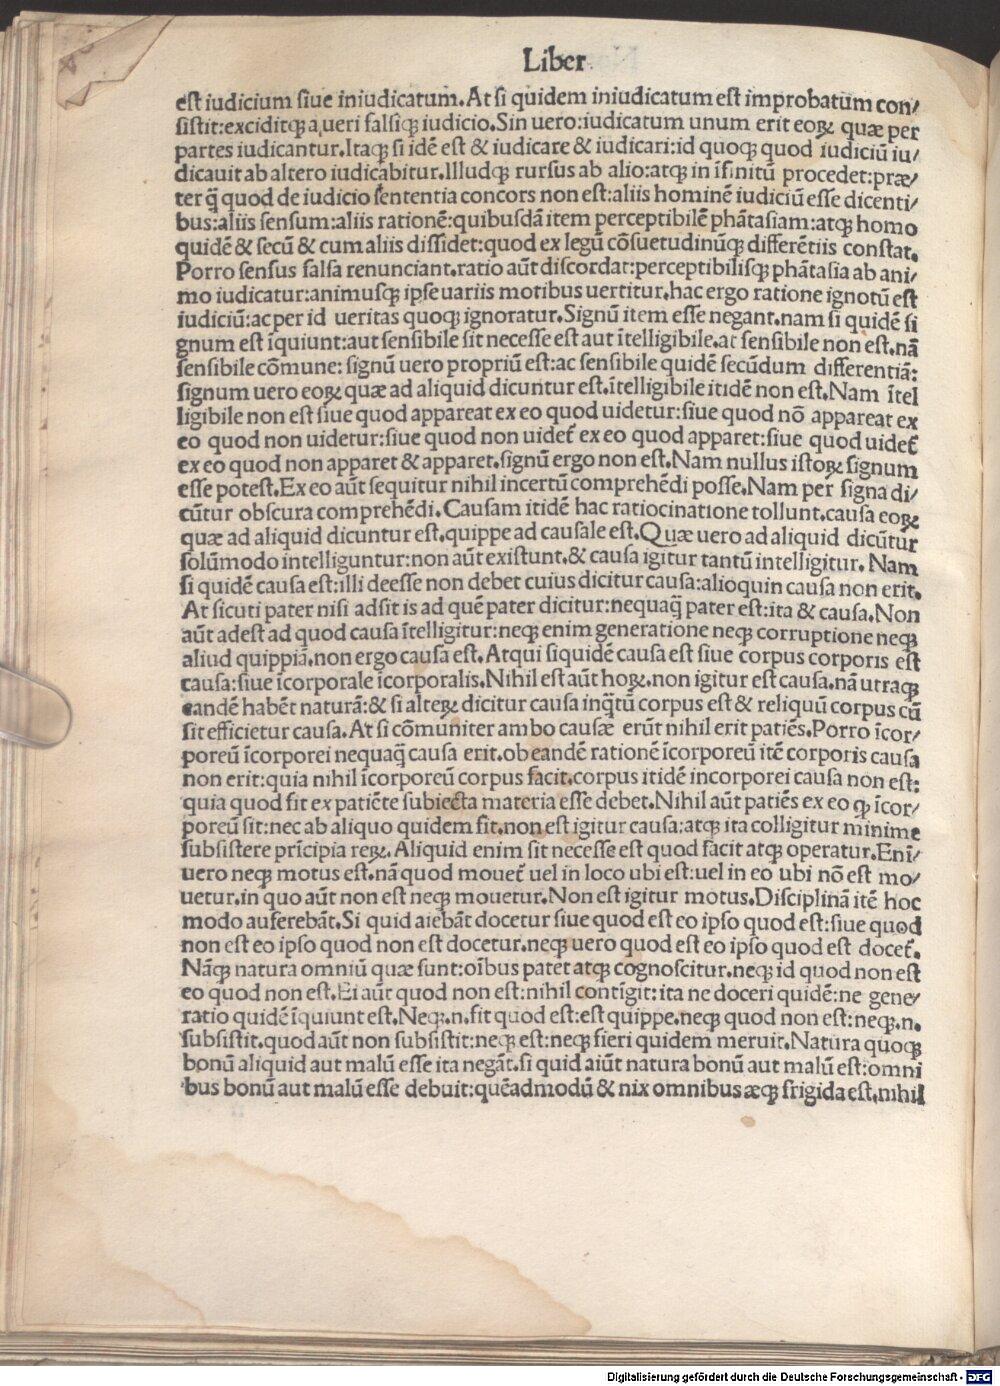 Liber
est iudicium siue iniudicatum. At si quidem iniudicatum est improbatum con/
sistit: exciditqꝫ a ueri falsiqꝫ iudicio. Sin uero: iudicatum unum erit eoꝝ quæ per
partes iudicantur. Itaqꝫ si idē est & iudicare & iudicari: id quoqꝫ quod iudiciū iu/
dicauit ab altero iudicabitur. Illudqꝫ rursus ab alio: atqꝫ in īfinitū procedet: præ/
ter q̄ quod de iudicio sententia concors non est: aliis hominē iudiciū esse dicenti/
bus: aliis sensum: aliis rationē: quibusdā item perceptibilē phātasiam: atqꝫ homo
quidē & secū & cum aliis dissidet: quod ex legū cōsuetudinūqꝫ differētiis constat.
Porro sensus falsa renunciant. ratio aūt discordat: perceptibilisqꝫ phātasia ab ani/
mo iudicatur: animusqꝫ ipse uariis motibus uertitur. hac ergo ratione ignotū est
iudiciū: ac per id ueritas quoqꝫ ignoratur. Signū item esse negant. nam si quidē si
gnum est īquiunt: aut sensibile sit necesse est aut ītelligibile. at sensibile non est. nā
sensibile cōmune: signū uero propriū est: ac sensibile quidē secūdum differentiā:
signum uero eoꝝ quæ ad aliquid dicuntur est. ītelligibile itidē non est. Nam ītel
ligibile non est siue quod appareat ex eo quod uidetur: siue quod nō appareat ex
eo quod non uidetur: siue quod non uidet᷑ ex eo quod apparet: siue quod uidet᷑
ex eo quod non apparet & apparet. signū ergo non est. Nam nullus istoꝝ signum
esse potest. Ex eo aūt sequitur nihil incertū comprehēdi posse. Nam per signa di/
cūtur obscura comprehēdi. Causam itidē hac ratiocinatione tollunt. causa eoꝝ
quæ ad aliquid dicuntur est. quippe ad causale est. Quæ uero ad aliquid dicūtur
solūmodo intelliguntur: non aūt existunt. & causa igitur tantū intelligitur. Nam
si quidē causa est: illi deesse non debet cuius dicitur causa: alioquin causa non erit.
At sicuti pater nisi adsit is ad quē pater dicitur: nequaq̄ pater est: ita & causa. Non
aūt adest ad quod causa ītelligitur: neqꝫ enim generatione neqꝫ corruptione neqꝫ
aliud quippiā. non ergo causa est. Atqui siquidē causa est siue corpus corporis est
causa: siue īcorporale īcorporalis. Nihil est aūt hoꝝ. non igitur est causa. nā utraqꝫ
eandē habēt naturā: & si alteꝝ dicitur causa inq̄tū corpus est & reliquū corpus cū
sit efficietur causa. At si cōmuniter ambo causæ erūt nihil erit patiēs. Porro īcor/
poreū īcorporei nequaq̄ causa erit. ob eandē rationē īcorporeū itē corporis causa
non erit: quia nihil īcorporeū corpus facit. corpus itidē incorporei causa non est:
quia quod fit ex patiēte subiecta materia esse debet. Nihil aūt patiēs ex eo ꝙ īcor/
poreū sit: nec ab aliquo quidem fit. non est igitur causa: atqꝫ ita colligitur minime
subsistere prīcipia reꝝ. Aliquid enim sit necesse est quod facit atqꝫ operatur. Enī/
uero neqꝫ motus est. nā quod mouet᷑ uel in loco ubi est: uel in eo ubi nō est mo/
uetur. in quo aūt non est neqꝫ mouetur. Non est igitur motus. Disciplinā itē hoc
modo auferebāt. Si quid aiebāt docetur siue quod est eo ipso quod est: siue quod
non est eo ipso quod non est docetur. neqꝫ uero quod est eo ipso quod est docet᷑.
Nāqꝫ natura omniū quæ sunt: oībus patet atqꝫ cognoscitur. neqꝫ id quod non est
eo quod non est. Ei aūt quod non est: nihil contīgit: ita ne doceri quidē: ne gene/
ratio quidē īquiunt est. Neqꝫ. n. fit quod est: est quippe. neqꝫ quod non est: neqꝫ. n.
subsistit. quod aūt non subsistit: neqꝫ est: neqꝫ fieri quidem meruit. Natura quoqꝫ
bonū aliquid aut malū esse ita negāt. si quid aiūt natura bonū aut malū est: omni
bus bonū aut malū esse debuit: quēadmodū & nix omnibus æqꝫ frigida est. nihil
Digitalisierung gefördert durch die Deutsche Forschungsgemeinschaft - DFG